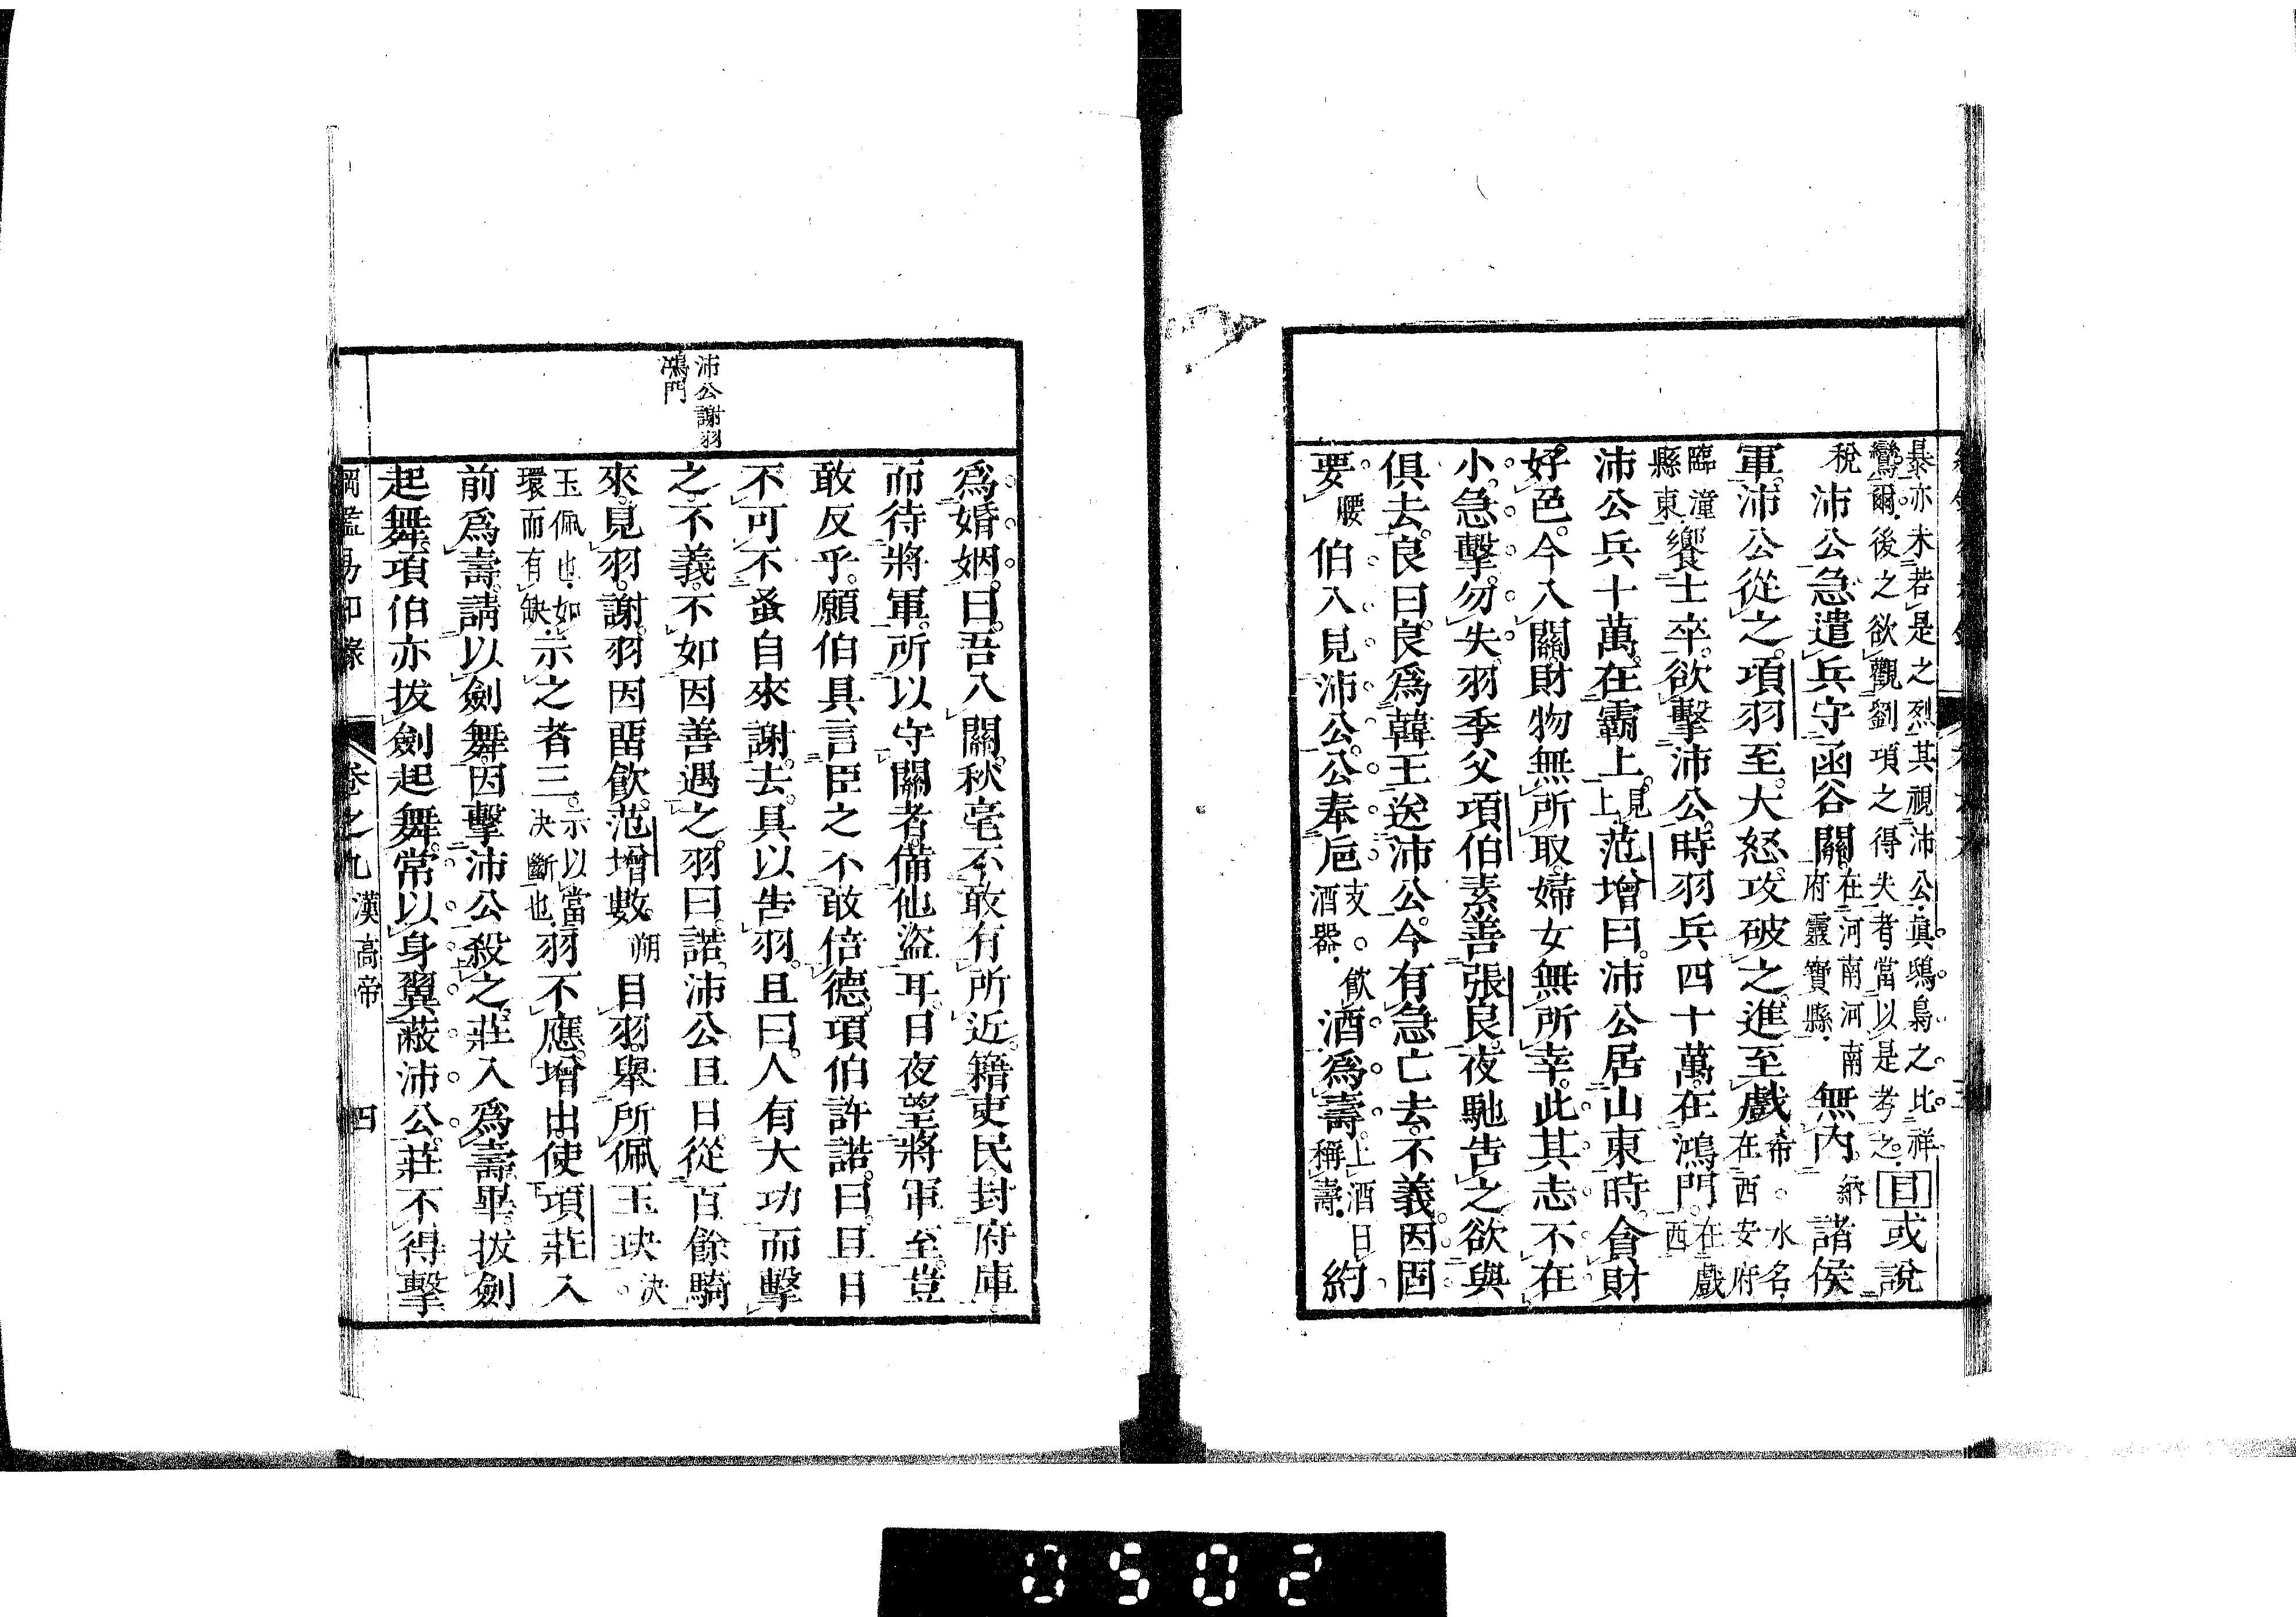 暴亦未若是之烈其視沛公眞鴟梟之比祥
鸞爾後之欲觀劉項之得失者當以是考之目或說
稅沛公急遣兵守函谷關在河南河南府靈寶縣無內納諸侯
軍沛公從之項羽至大怒攻破之進至戲希水名在西安府
臨潼縣東饗士卒欲擊沛公時羽兵四十萬在鴻門在戲西
沛公兵十萬在霸上見上范增曰沛公居山東時貪財
好色今入關財物無所取婦女無所幸此其志不在
小急擊勿失羽季父項伯素善張良夜馳告之欲與
俱去良曰良爲韓王送沛公今有急亡去不義因固
要腰伯入見沛公公奉巵支酒器飮酒爲壽上酒曰稱壽約
沛公謝羽
鴻門
爲婚姻曰吾入關秋毫不敢有所近籍吏民封府庫
而待將軍所以守關者備他盜耳日夜望將軍至豈
敢反乎願伯具言臣之不敢倍德項伯許諾曰旦日
不可不蚤自來謝去具以告羽且曰人有大功而擊
之不義不如因善遇之羽曰諾沛公旦日從百餘騎
來見羽謝羽因畱飮范增數朔目羽舉所佩玉玦決
玉佩也如環而有缺示之者三示以當決斷也羽不應增出使項莊入
前爲壽請以劍舞因擊沛公殺之莊入爲壽畢拔劍
起舞項伯亦拔劍起舞常以身翼蔽沛公莊不得擊
綱鑑易知錄 卷之九 漢高帝 四
0502